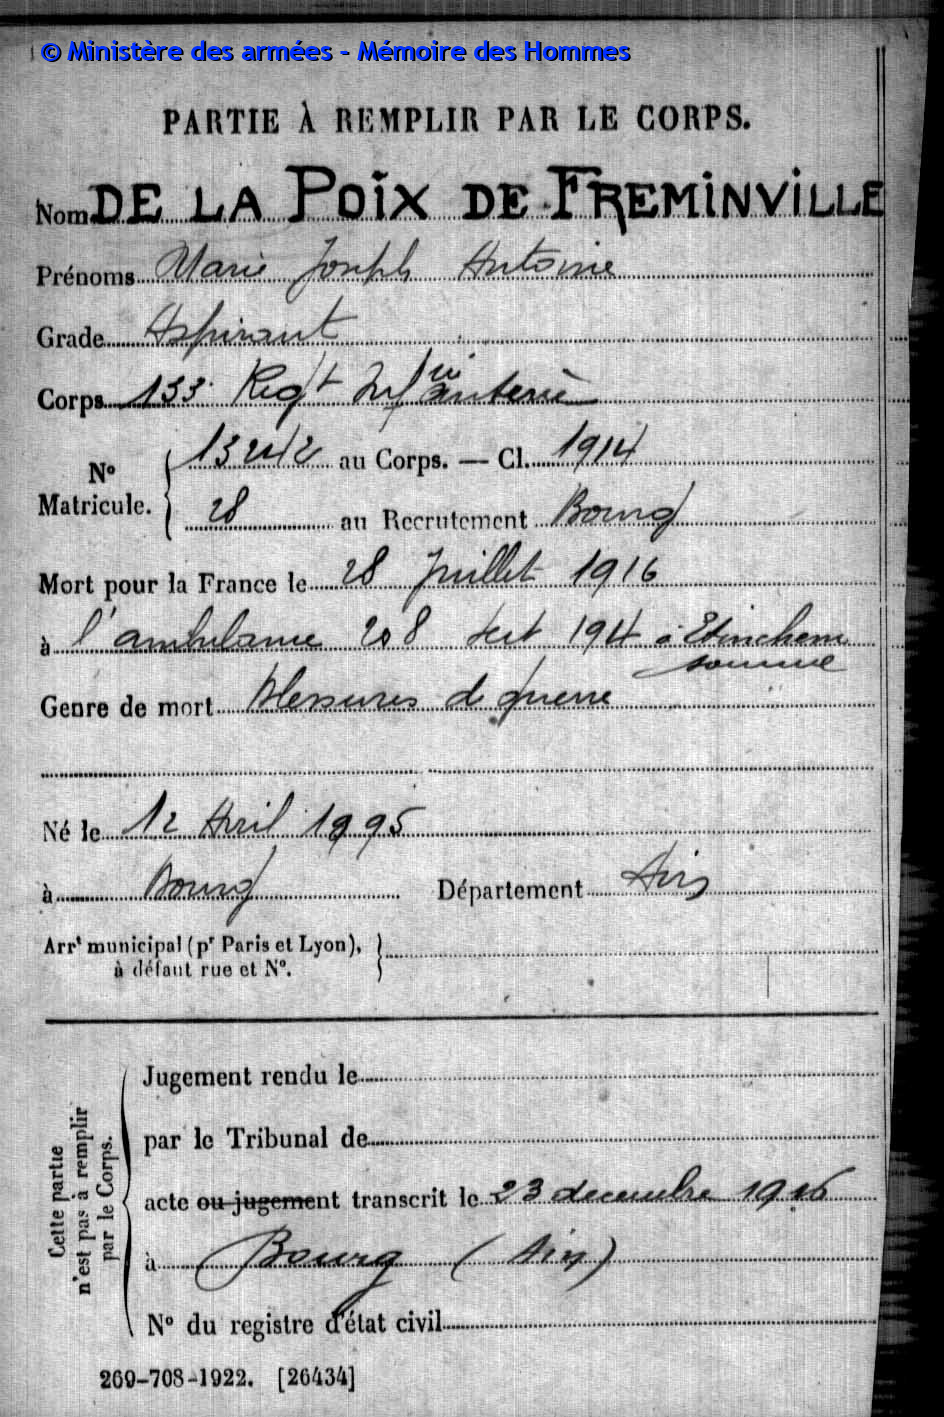 © Ministère des armées - Mémoire des Hommes
PARTIE À REMPLIR PAR LE CORPS.
Nom DE LA POÏX DE FREMINVILLE
Prénoms Marie Joseph Antoine
Grade Aspirant
Corps 133 Regt Infanterie
13242 au Corps. — Cl. 1914
N°
Matricule.
28 au Recrutement Bourg
Mort pour la France le 28 Juillet 1916
à l'ambulance 208 sect 194 à Etinehem
Somme
Genre de mort Blessures de guerre
Né le 12 Avril 1995
à Bourg Département Ain
Arrt municipal (pr Paris et Lyon),
à défaut rue et N°.
Cette partie
n'est pas à remplir
par le Corps.
Jugement rendu le
par le Tribunal de
acte ou jugement transcrit le 23 decembre 1916
à Bourg (Ain)
N° du registre d'état civil
269-708-1922. [26434]